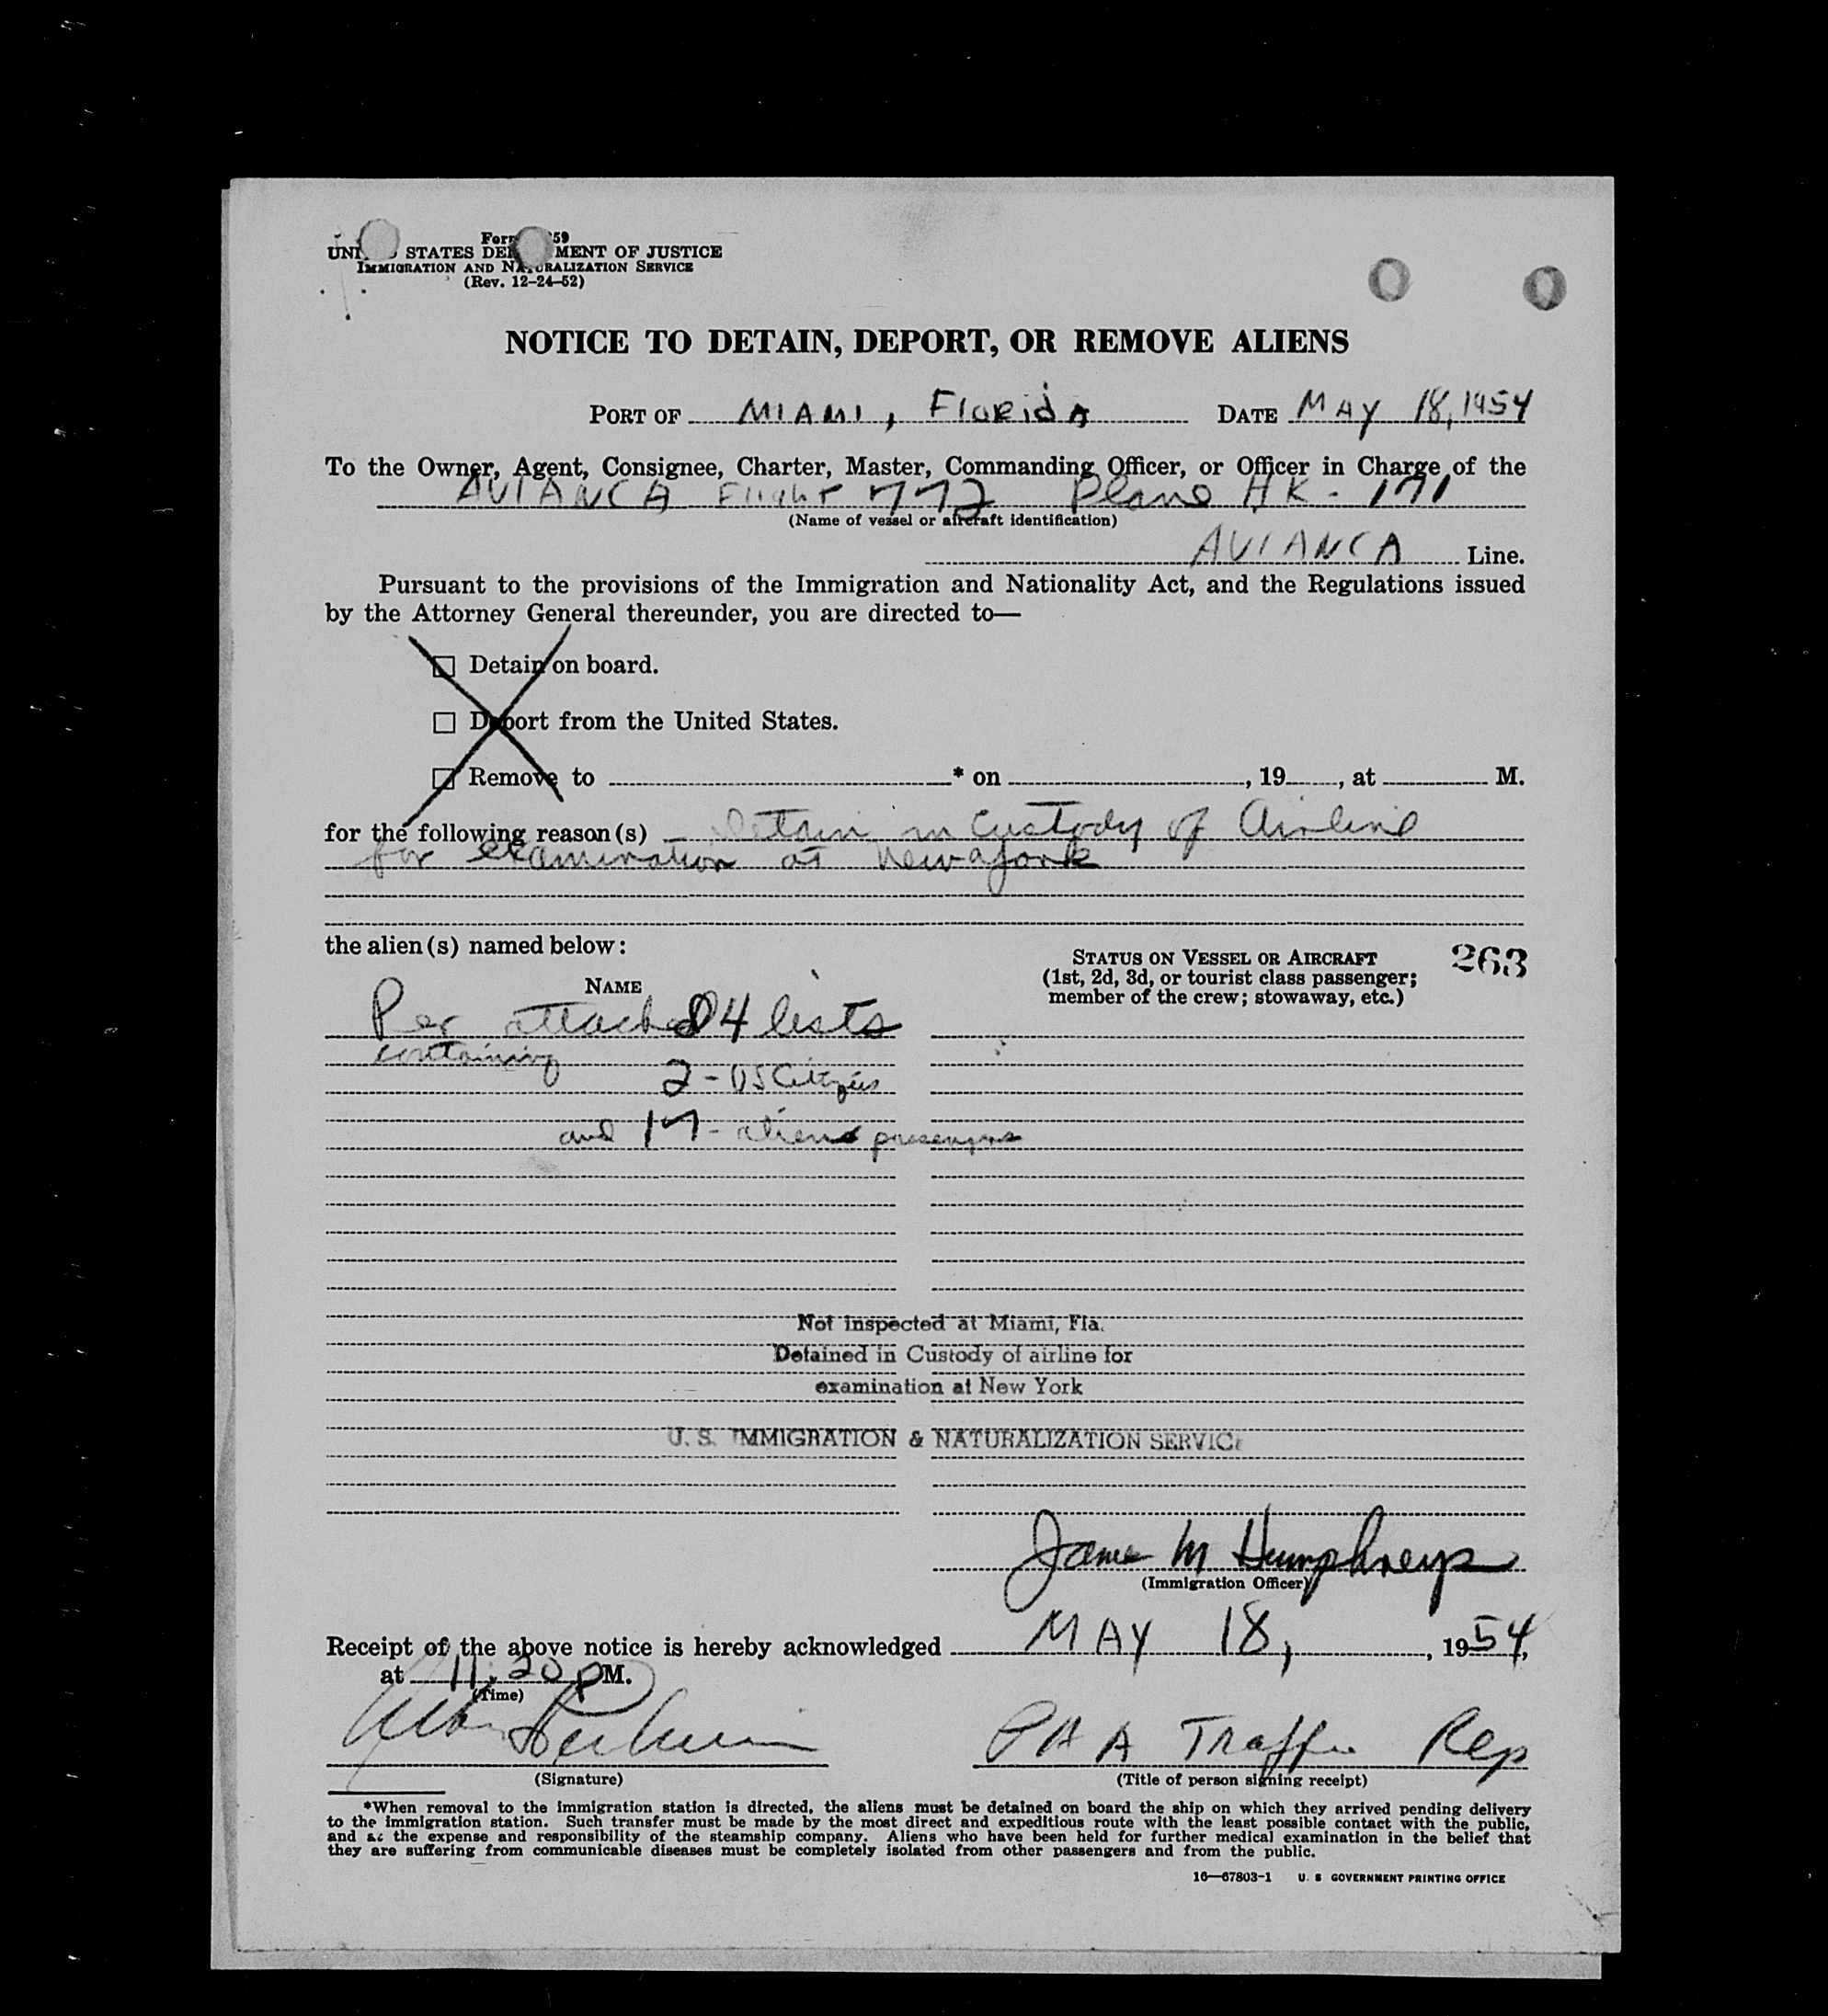 Form 59
UNI STATES DE MENT OF JUSTICE
IMMIGRATION AND NATURALIZATION SERVICE
(Rev. 12-24-52)
NOTICE TO DETAIN, DEPORT, OR REMOVE ALIENS
PORT OF MIAMI, Florida DATE MAY 18, 1954
To the Owner, Agent, Consignee, Charter, Master, Commanding Officer, or Officer in Charge of the
AVIANCA Flight 772 Plane HK-171
(Name of vessel or aircraft identification)
AVIANCA Line.
Pursuant to the provisions of the Immigration and Nationality Act, and the Regulations issued
by the Attorney General thereunder, you are directed to—
☐ Detain on board.
☐ Deport from the United States.
☐ Remove to * on , 19 , at M.
for the following reason(s) - Detain in Custody of Airline
for examination at New York
the alien(s) named below:
263
STATUS ON VESSEL OR AIRCRAFT
(1st, 2d, 3d, or tourist class passenger;
member of the crew; stowaway, etc.)
NAME
Per attached 4 lists
containing
2 - US Citizens
and 17 - aliens passengers
Not inspected at Miami, Fla.
Detained in Custody of airline for
examination at New York
U. S. IMMIGRATION & NATURALIZATION SERVICE
James M Humphreys
(Immigration Officer)
Receipt of the above notice is hereby acknowledged MAY 18, , 1954,
at 11:20 P M.
(Time)
PAA Traffic Rep
(Signature) (Title of person signing receipt)
*When removal to the immigration station is directed, the aliens must be detained on board the ship on which they arrived pending delivery
to the immigration station. Such transfer must be made by the most direct and expeditious route with the least possible contact with the public,
and at the expense and responsibility of the steamship company. Aliens who have been held for further medical examination in the belief that
they are suffering from communicable diseases must be completely isolated from other passengers and from the public.
16—67803-1 U. S GOVERNMENT PRINTING OFFICE